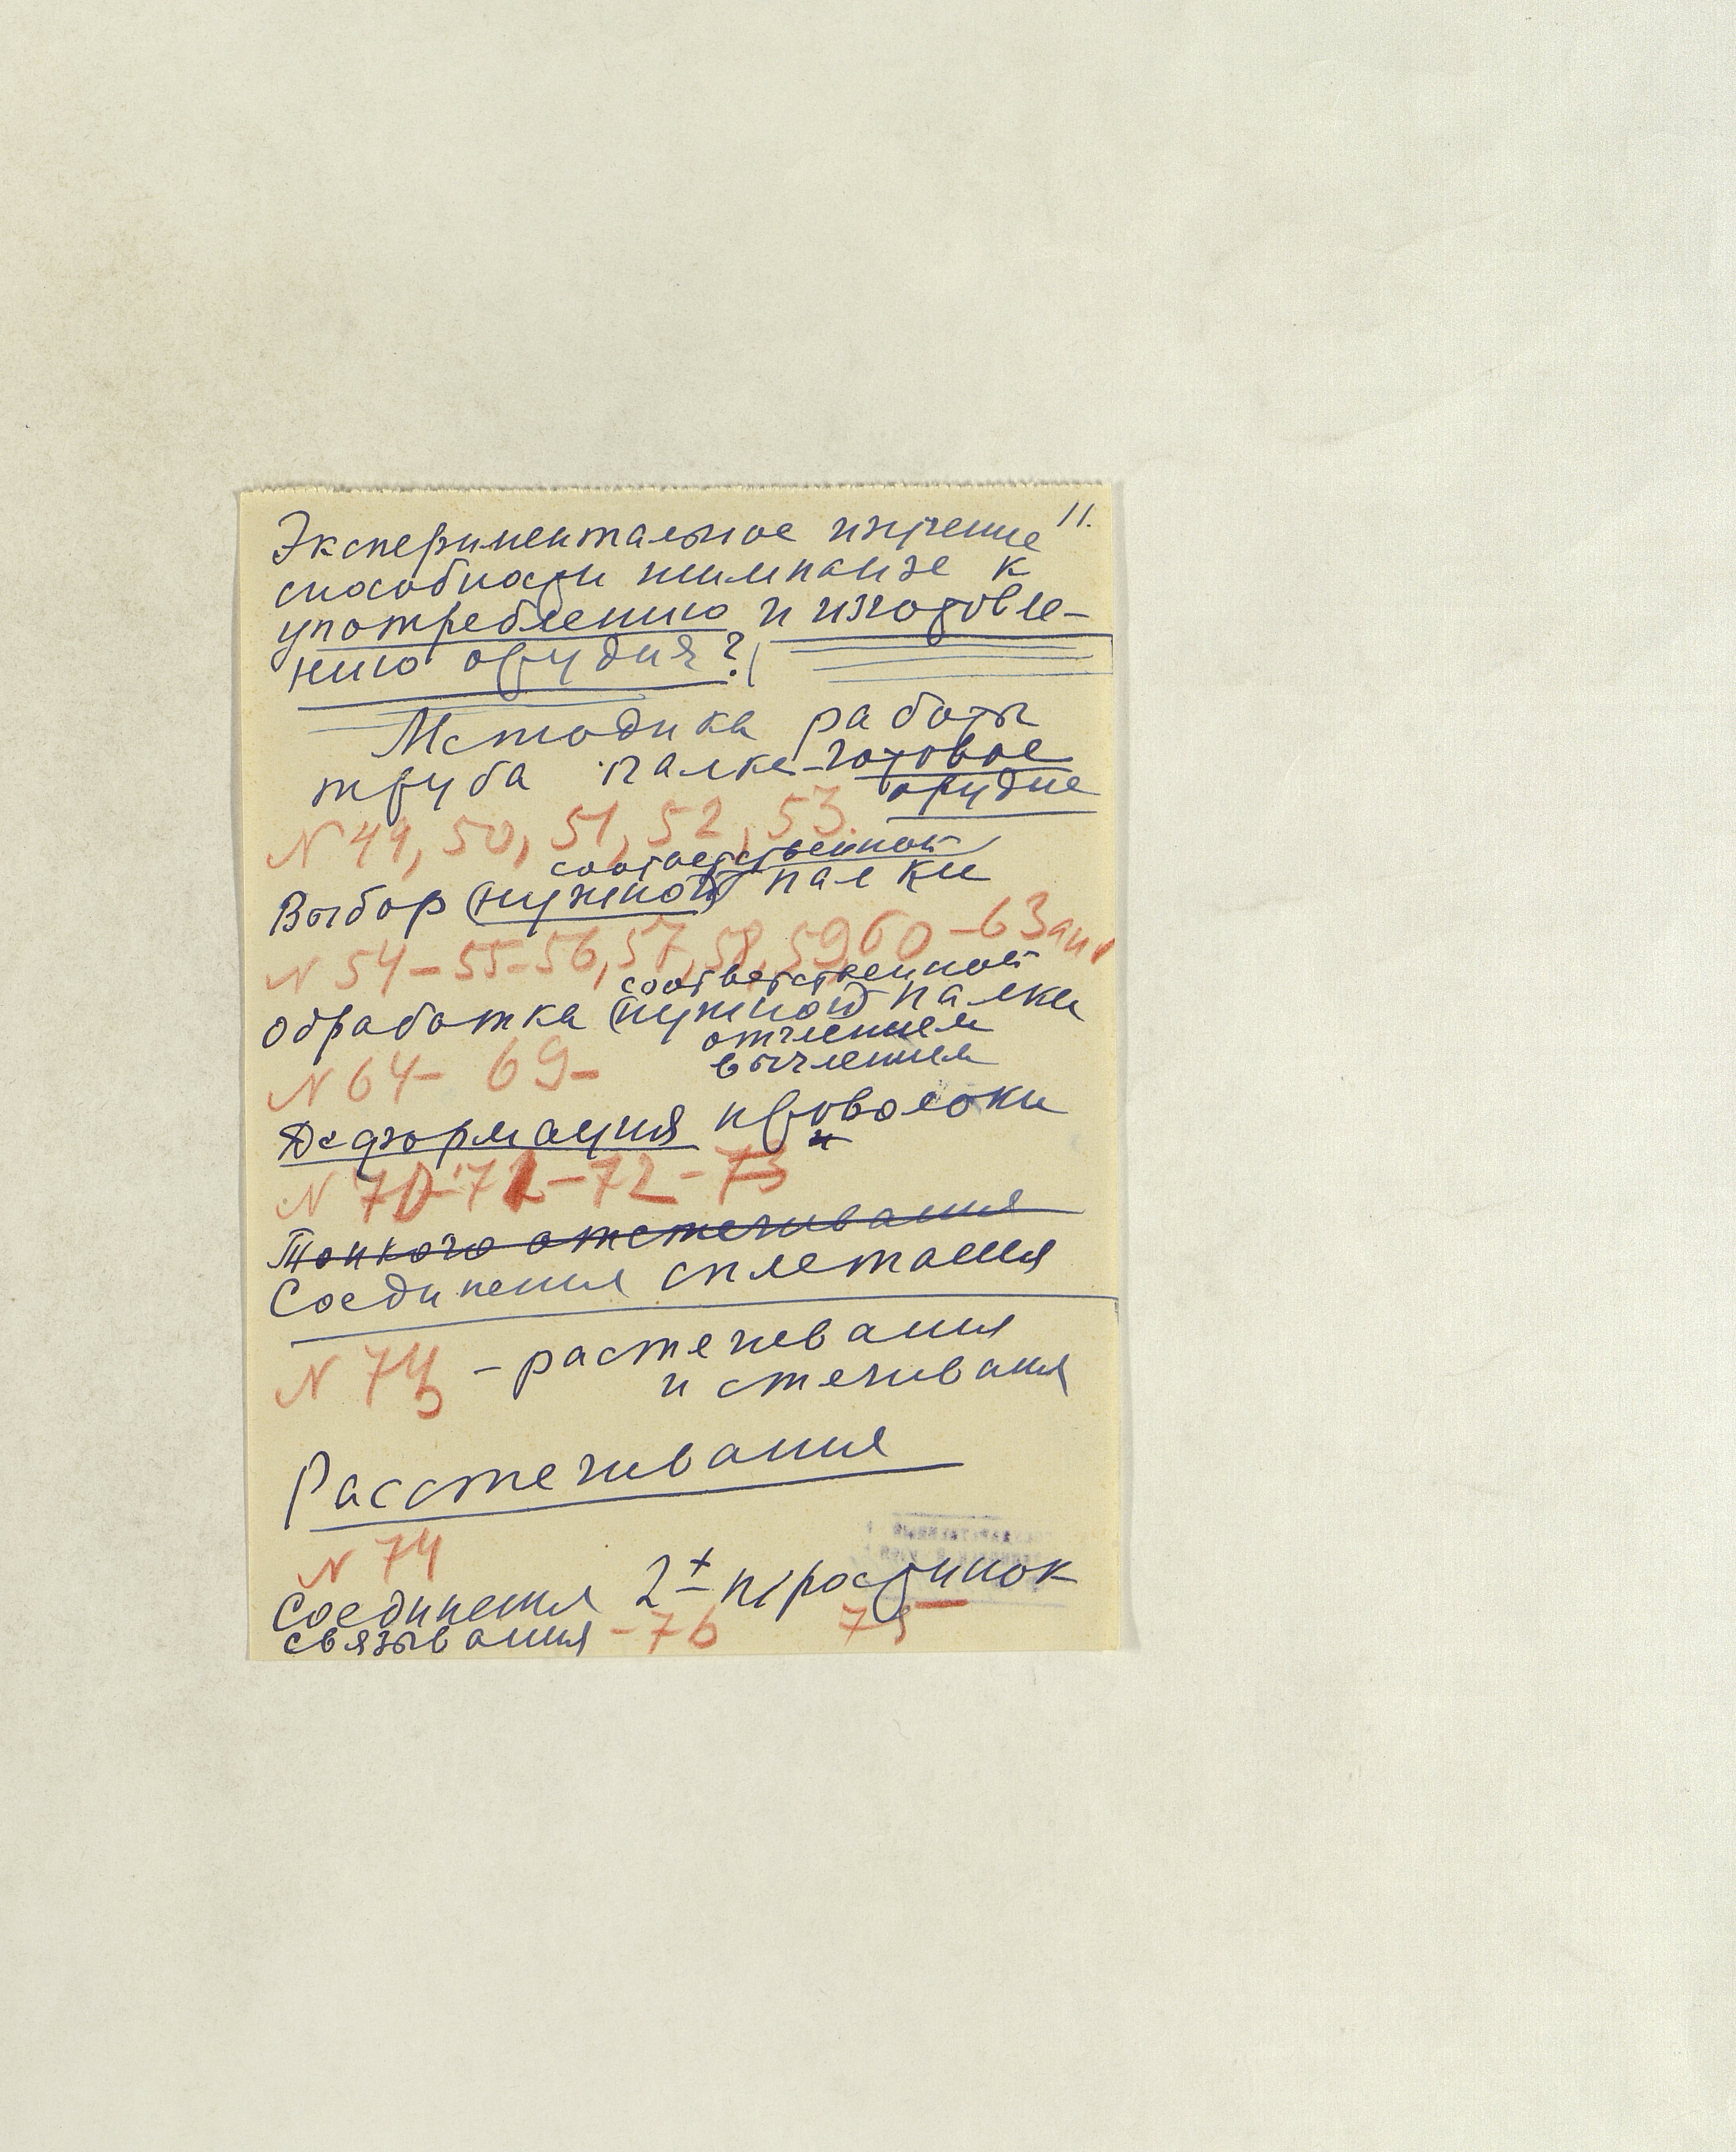 11.
Экспериментальное изучение
способности шимпанзе к
употреблению и изготовле-
нию орудия?
Методика работы
труба палке-готовое
орудие
N 49, 50, 51, 52, 53.
соответственной
Выбор (нужной) палки
N 54-55-56, 57, 58, 59, 60-63
соответственной
обработка (нужной) палки
отчлением
вычлением
N 64-69-
Деформация проволоки
N 70-71-72-73
Тонкого отстегивания
Соединения сплетания
N 74 - растегивания
и стегивания
Расстегивания
N 74
Соединения 2х
связывания -76 75